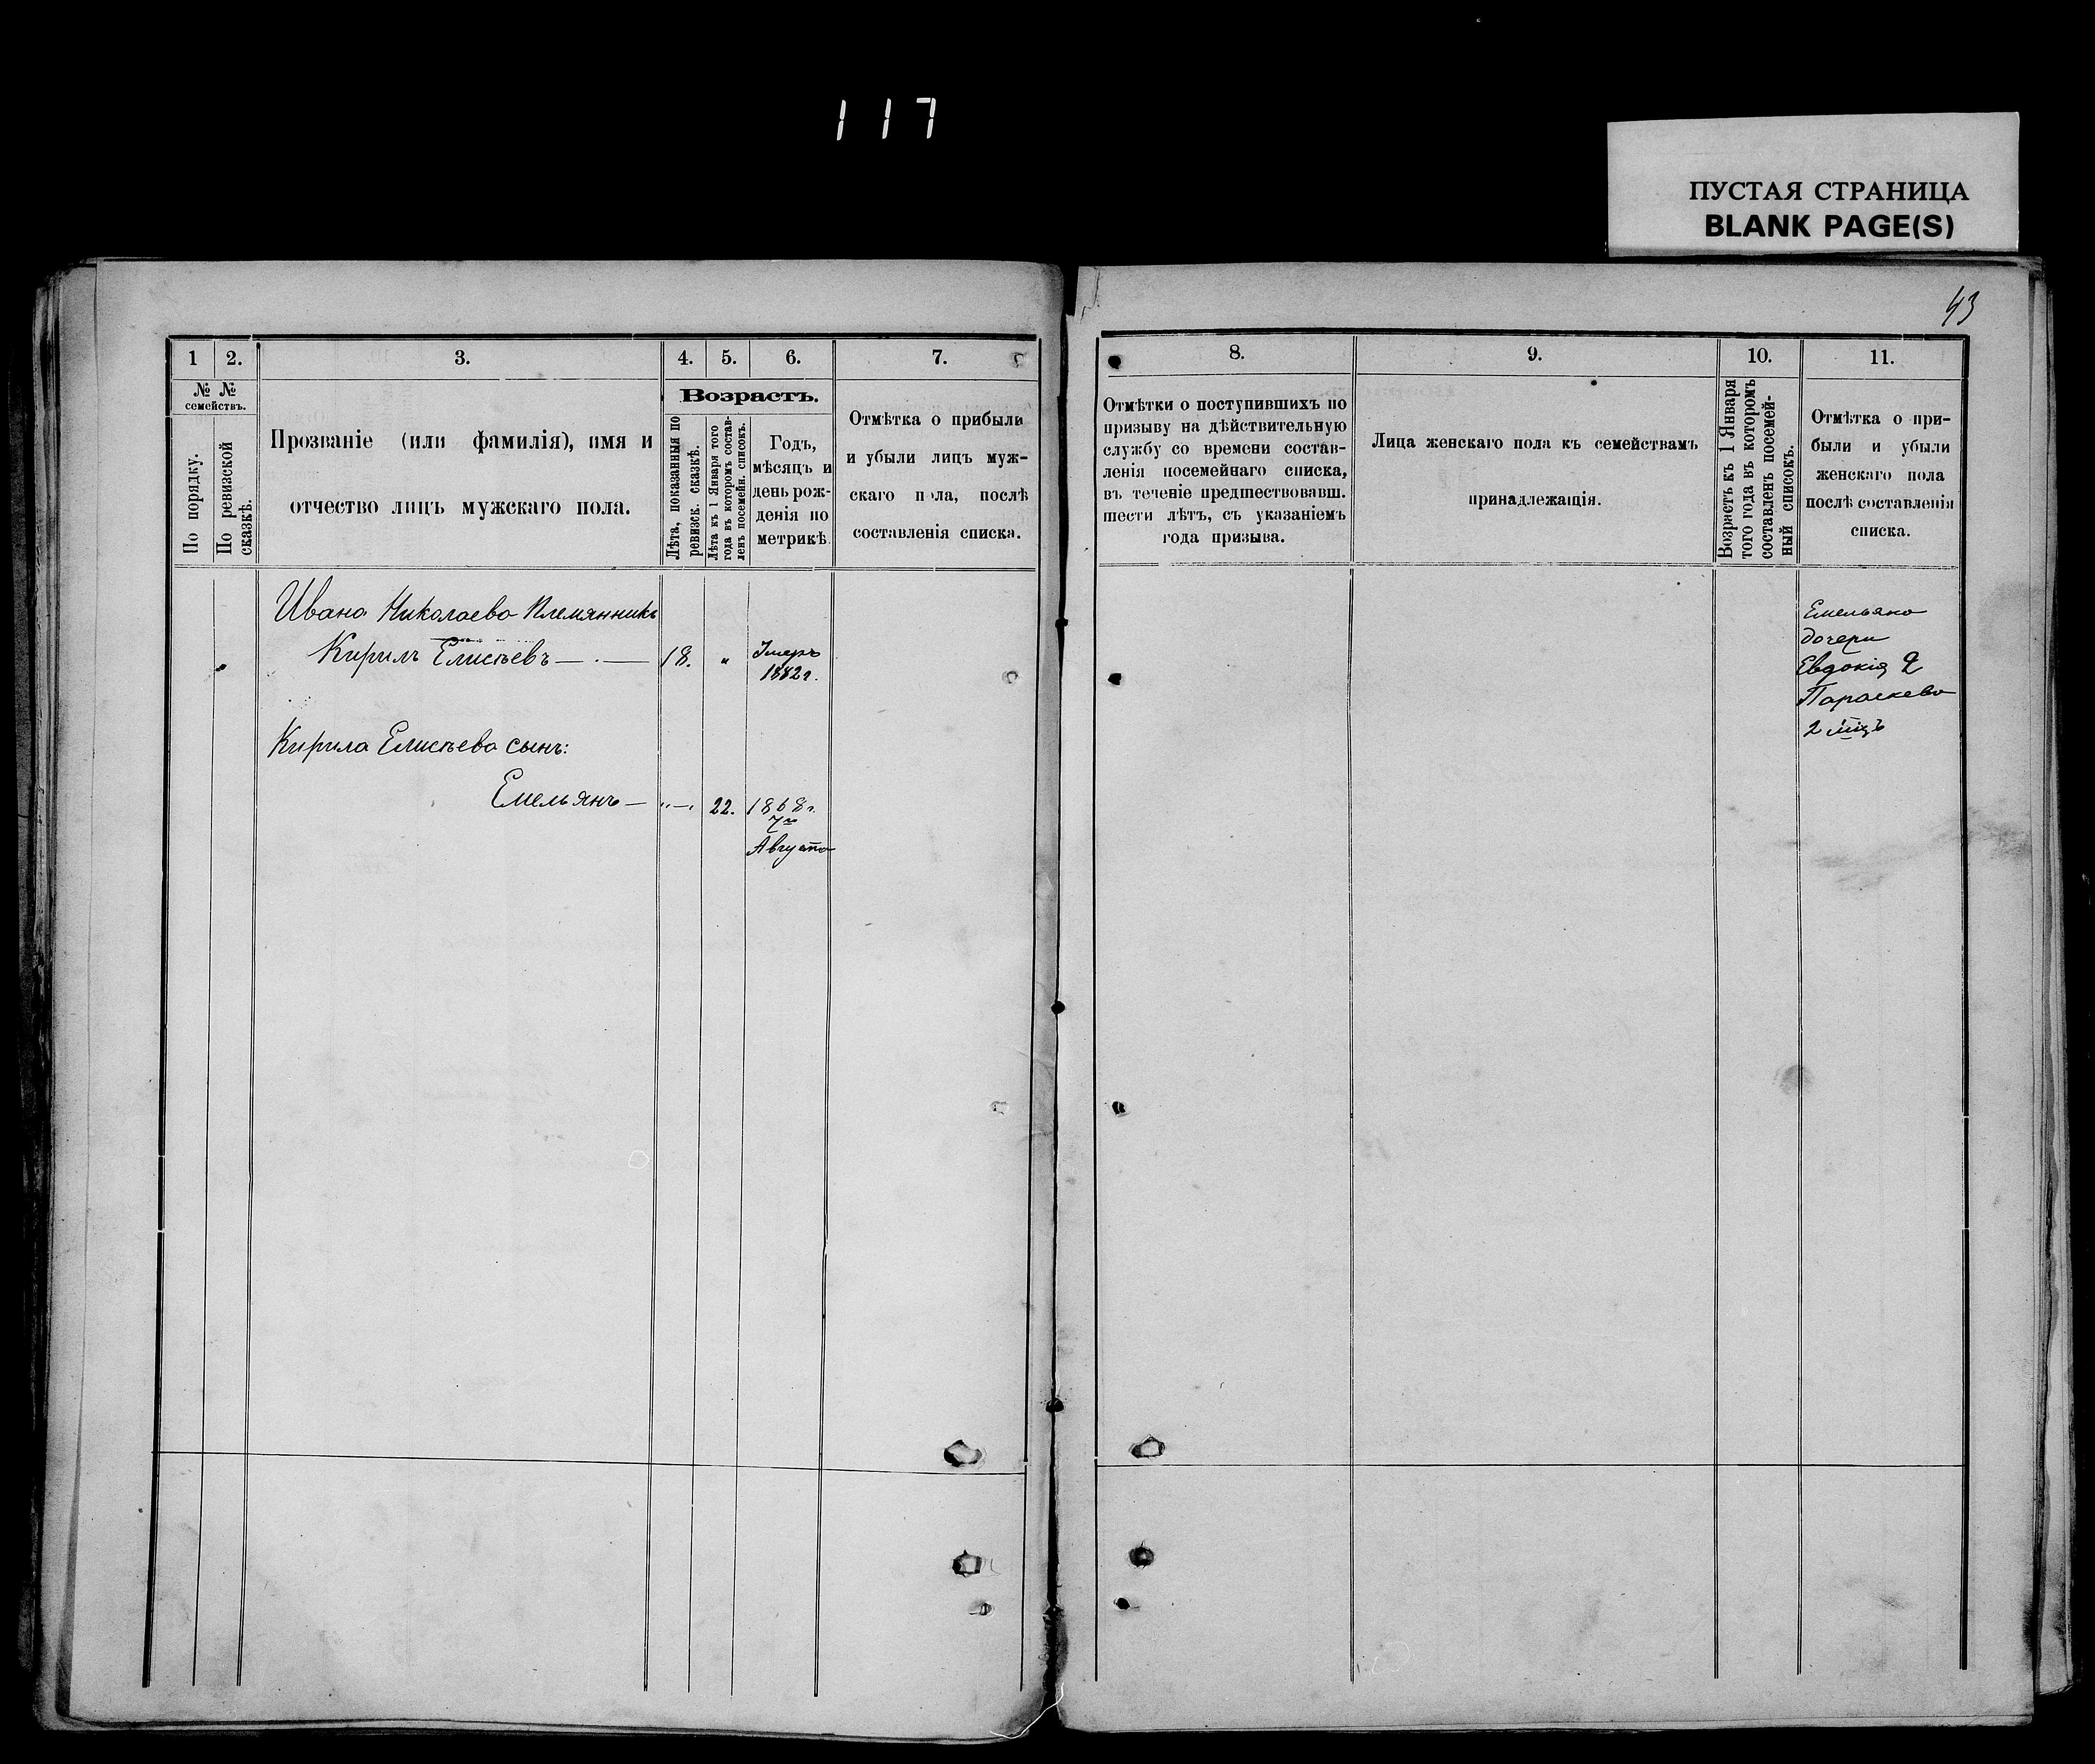 117
ПУСТАЯ СТРАНИЦА
BLANK PAGE(S)
1
2.
3.
4.
5.
6.
7.
№ №
семействъ.
По порядку.
По ревизской
сказкѣ.
Прозваніе (или фамилія), имя и
отчество лицъ мужскаго пола.
Возрастъ.
Лѣта, показанныя по
ревизск. сказкѣ.
Лѣта къ 1 Января того
года въ которомъ состав-
ленъ посемейн. списокъ.
Годъ,
мѣсяцъ и
день рож-
денія по
метрикѣ
Отмѣтка о прибыли
и убыли лицъ муж-
скаго пола, послѣ
составленія списка.
Ивана Николаева Племянникъ
Кирилъ Елисѣевъ — . — 18. " Умеръ
1882 г.
Кирила Елисѣева сынъ:
Емельянъ — "—. 22. 1868 г.
7го
Августа
43
8.
9.
10.
11.
Отмѣтки о поступившихъ по
призыву на дѣйствительную
службу со времени состав-
ленія посемейнаго списка,
въ теченіе предшествовавш.
шести лѣтъ, съ указаніемъ
года призыва.
Лица женскаго пола къ семействамъ
принадлежащія.
Возрастъ къ 1 Января
того года въ которомъ
составленъ посемей-
ный списокъ.
Отмѣтка о при-
были и убыли
женскаго пола
послѣ составленія
списка.
Емельяна
дочери
Евдокія 2
Параскева
2 мѣц